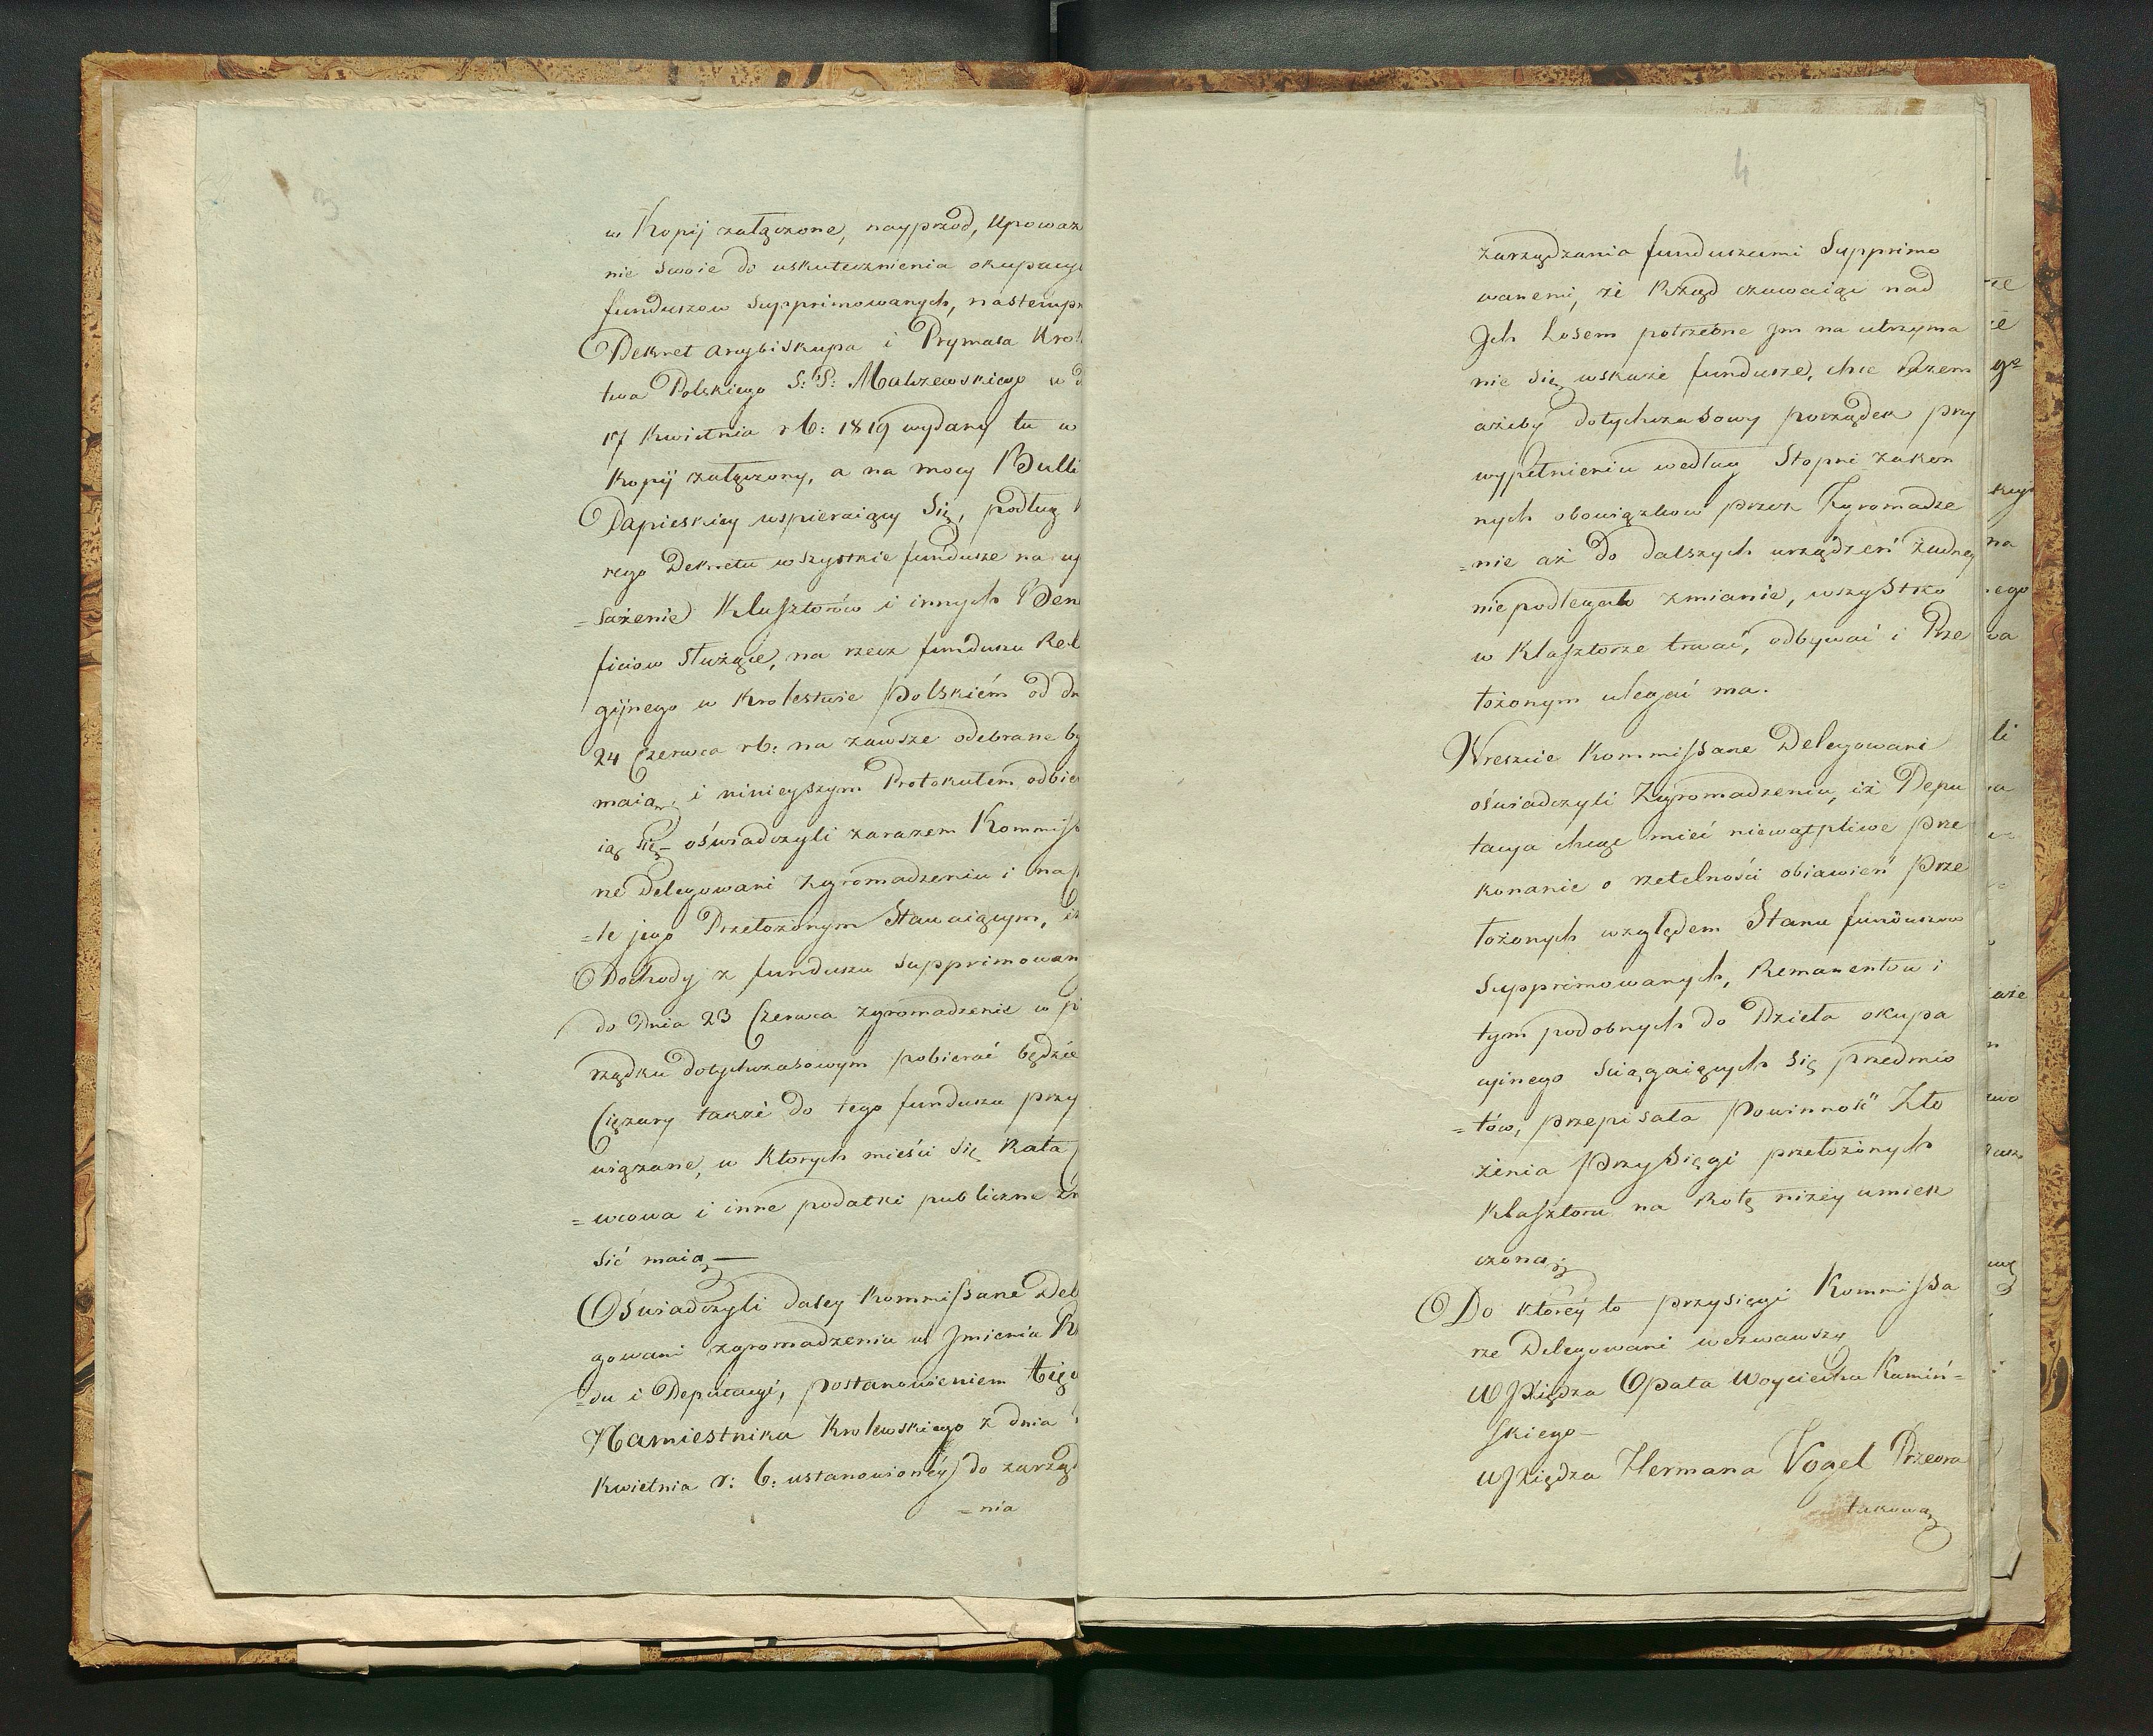 3
w Kopij załączone, nayprzod, upoważ
nie swoie do uskutecznienia okupacyi
funduszow supprimowanych, nastempn
Dekret arcybiskupa i Prymasa Krol
twa Polskiego S: P: Malczewskiego w d
17 Kwietnia rb: 1819 wydany tu w
kopij załączony, a na mocy Bulli
Papieskiey wspieraiący się, podług
rego Dekretu wszystkie fundusze na uy
=sażenie Klasztorów i innych Ben
ficiow służące, na rzecz funduszu Rel
gijnego w Krolestwie Polskiém od dn
24 Czerwca rb: na zawsze odebrane by
maią, i ninieyszym Protokułem odbier
ią się – oświadczyli zarazem Kommiss
ne Delegowani Zgromadzeniu i na
=le jego Przełożonym Stawaiącym, iż
Dochody z funduszu supprimowan
do Dnia 23 Czerwca zgromadzenie w p
rządku dotychczasowym pobierać będzie
Ciężary także do tego funduszu przy
wiązane, w ktorych mieści się Rata
=wcowa i inne podatki publiczne zn
sić maią —
Oświadczyli daley Kommissarze Del
gowani zgromadzeniu w Jmieniu R
=du i Deputacyi, postanowieniem Xięc
Namiestnika Krolewskiego z dnia
Kwietnia r: b: ustanowioney do zarząd
=nia
4
zarządzania funduszami Supprimo
wanemi, że Rząd czuwaiąc nad
Jch Losem potrzebne Jm na utrzyma
nie się wskaże fundusze, chce Razem
ażeby dotychczasowy porządek przy
wypełnieniu według Stopni zakon
nych obowiązkow przez Zgromadze
=nie aż do dalszych urządzeń żadney
niepodlegało zmianie, wszystko
w Klasztorze trwać, odbywać i Prze
łożonym ulegać ma.
Wreszcie Kommissarze Delegowani
oświadczyli Zgromadzeniu, iż Depu
tacya chcąc mieć niewątpliwe prze
konanie o rzetelności obiawień prze
łożonych względem Stanu funduszow
supprimowanych, Remanentow i
tym podobnych do Dzieła okupa
cyinego ściągaiących się przedmio
=tów, przepisała powinność Zło
żenia Przysięgi przełożonych
Klasztoru na Rotę niżey umiesz
czoną;
Do którey to przysięgi Kommissa
rze Delegowani wezwawszy
WJXiędza Opata Woyciecha Kamiń=
skiego –
WJXiędza Hermana Vogel Przeora
takową